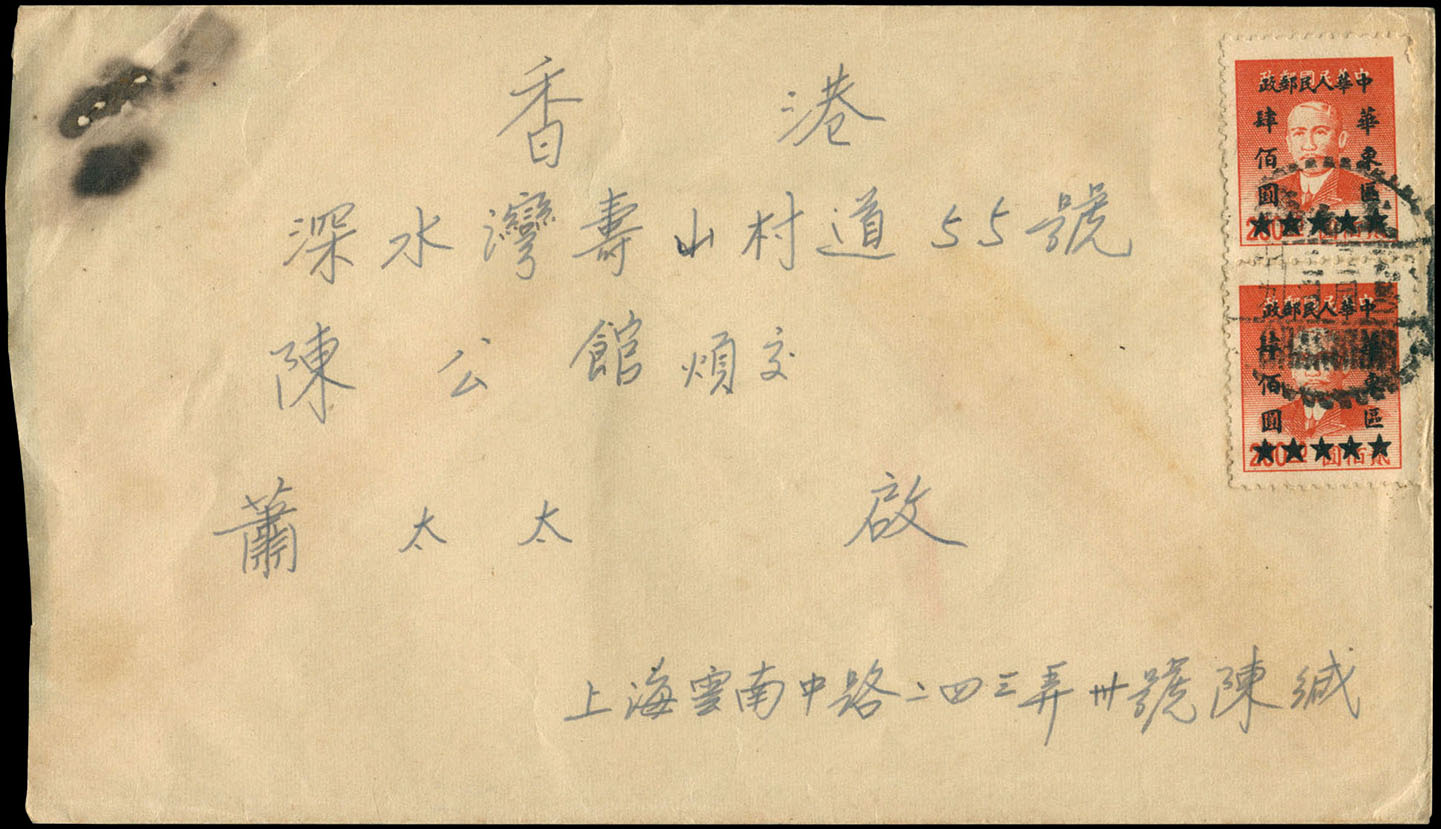 香港
深水灣壽山村道55號
陳公館煩交
蕭太太 啟
上海雲南中路二四三弄卅號陳緘
中華人民郵政
華東區
肆佰圓
★★★★★
貳佰圓
中華人民郵政
華東區
肆佰圓
★★★★★
貳佰圓